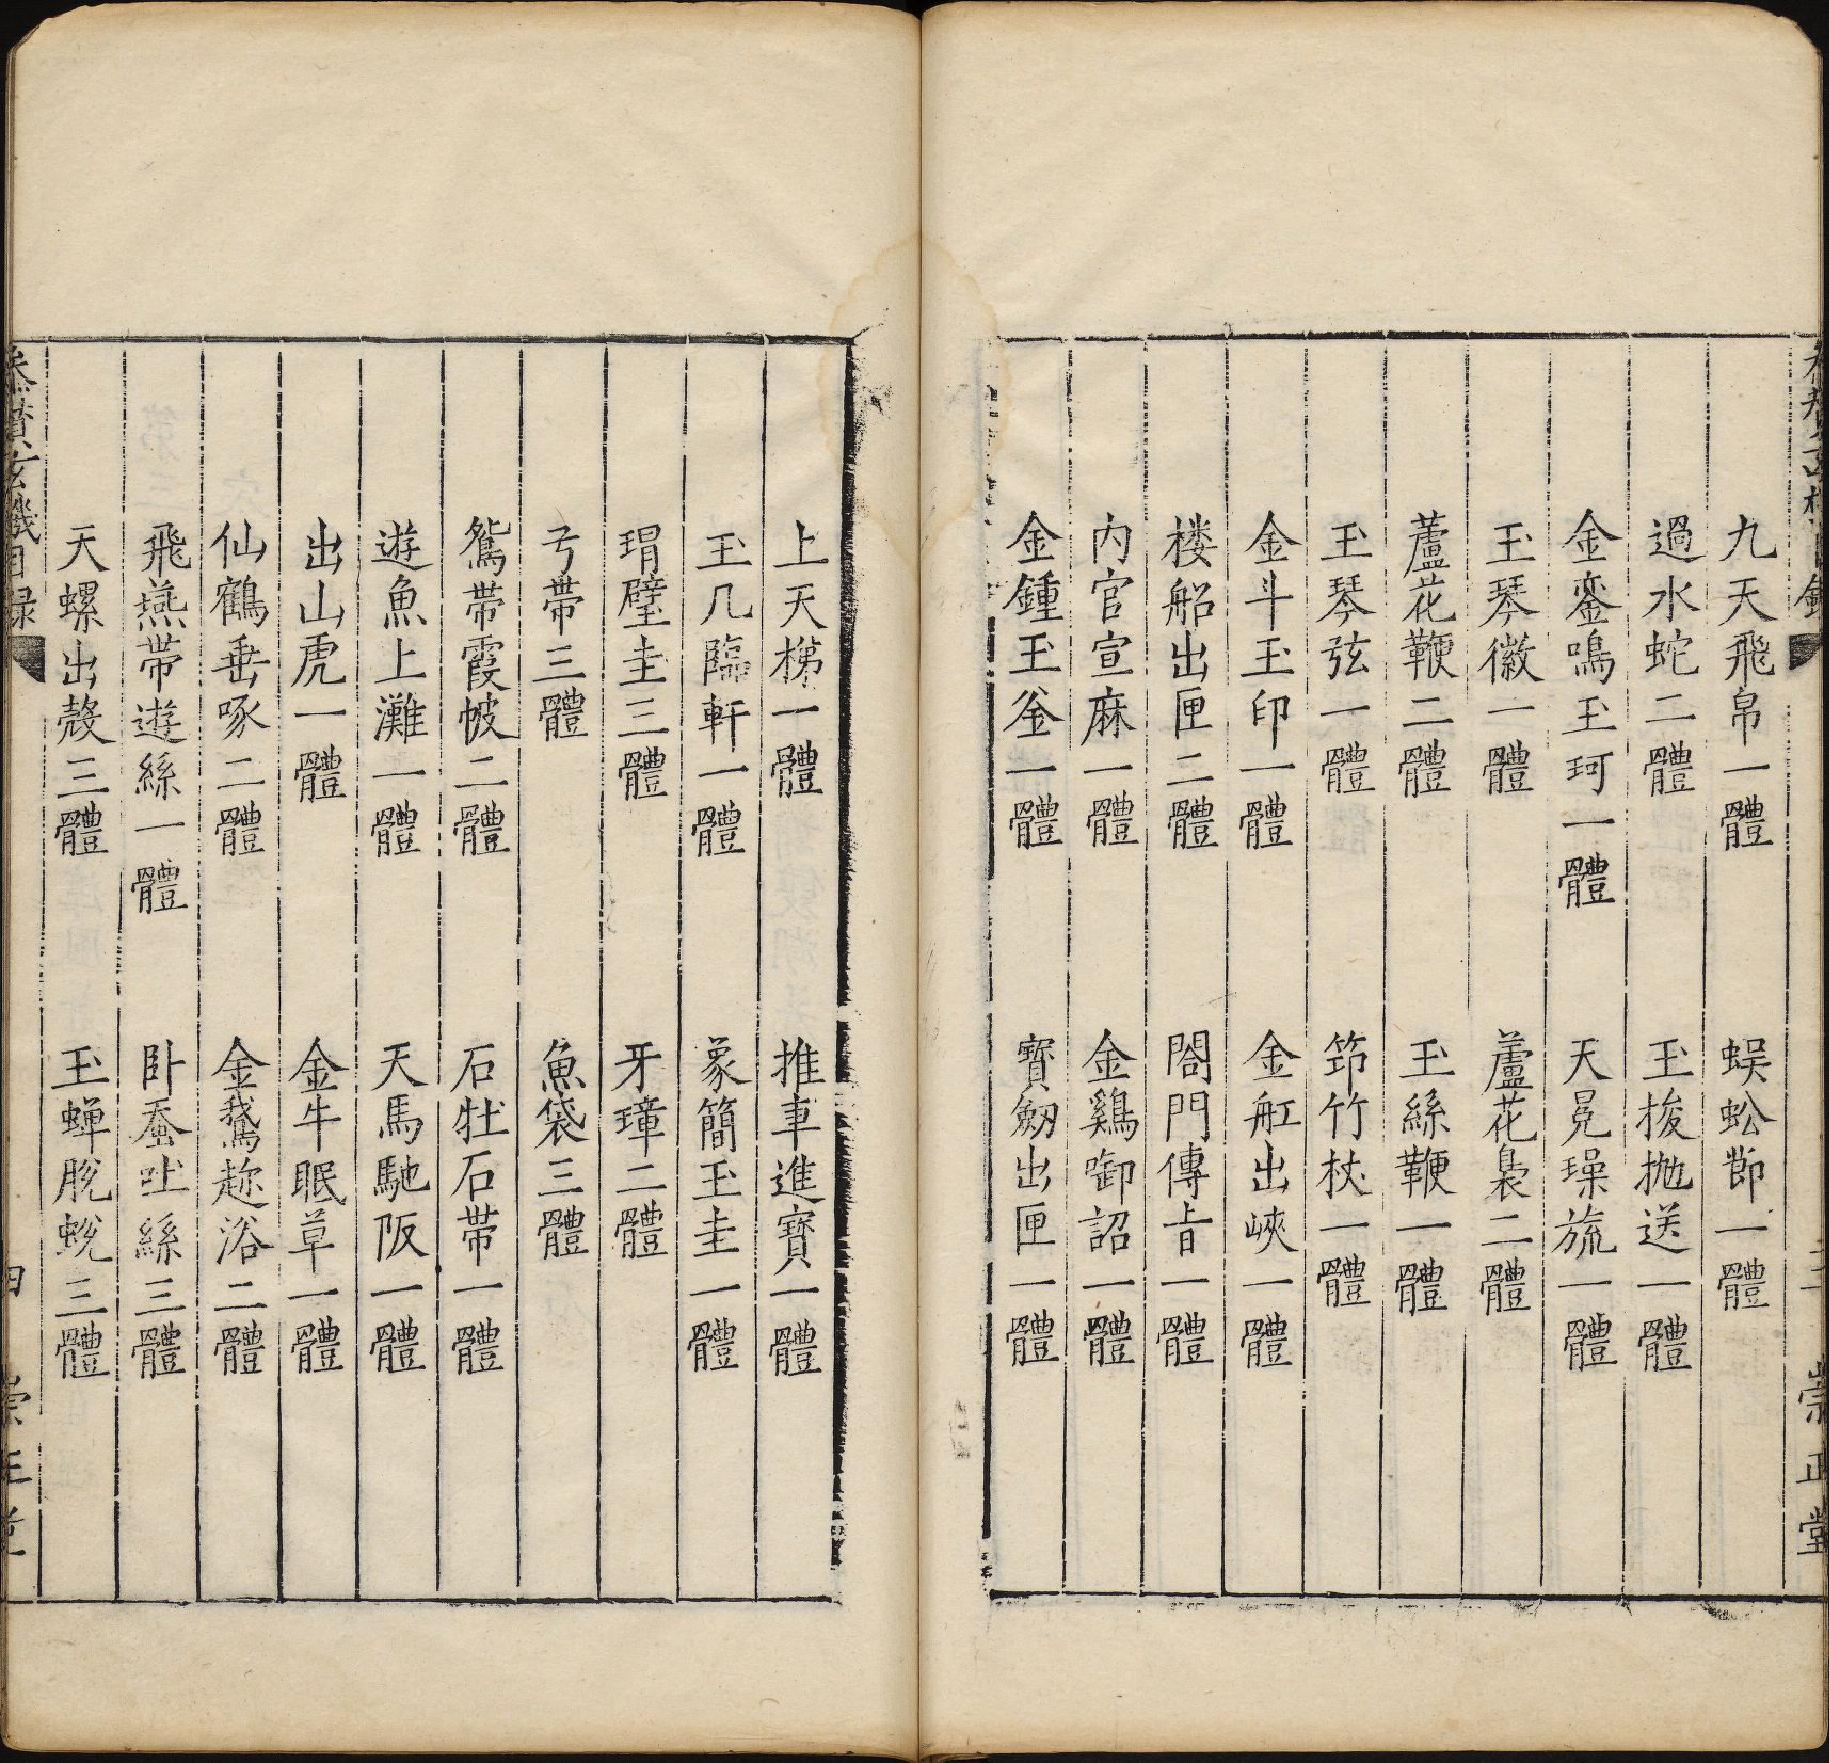 參贊玄機目錄　三　崇正堂
九天飛帛一體　蜈蚣節一體
過水蛇二體　玉梭拋送一體
金鑾鳴玉珂一體　天冕璪旒一體
玉琴徽一體　蘆花裊二體
蘆花鞭二體　玉絲鞭一體
玉琴弦一體　筇竹杖一體
金斗玉印一體　金舡出峽一體
楼船出匣二體　閤門傳旨一體
內官宣麻一體　金鷄啣詔一體
金鍾玉釜一體　寶劔出匣一體
上天梯一體　推車進寶一體
玉几臨軒一體　象簡玉圭一體
琄璧圭三體　牙璋二體
弓帶三體　魚袋三體
鴛帶霞帔二體　石牡石帶一體
遊魚上灘一體　天馬馳阪一體
出山虎一體　金牛眠草一體
仙鶴垂啄二體　金鵞趂浴二體
飛燕帶遊絲一體　卧蚕吐絲三體
天螺出殼三體　玉蟬脫蛻三體
參贊玄機目録　四　崇正堂